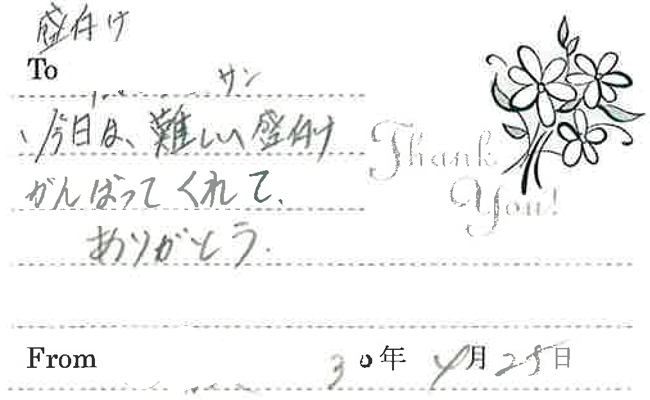 盛付け
To サン
今日は、難しい盛付け
がんばってくれて、
ありがとう.
Thank
You!
From 30年 4月25日